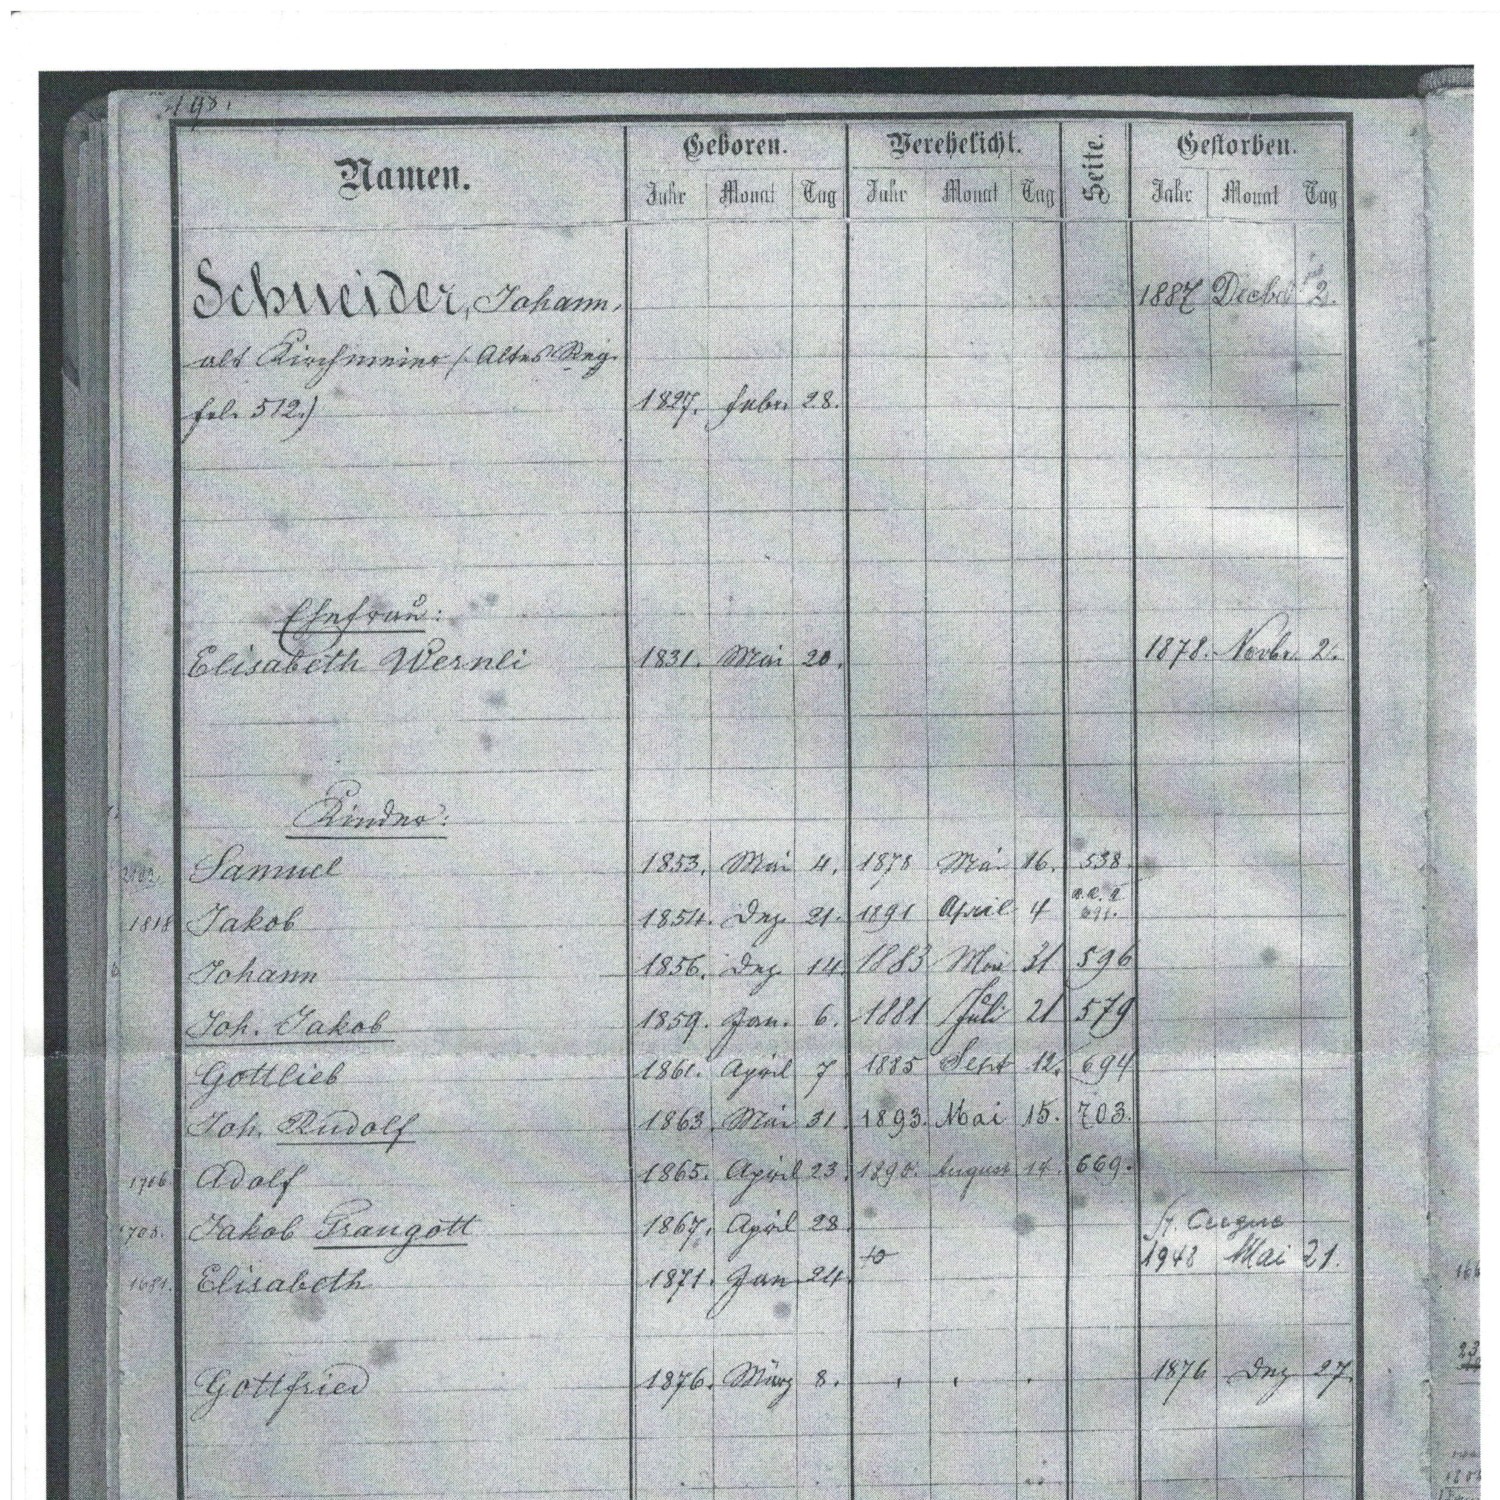 198.
Namen. Geboren. Verehelicht. Seite. Gestorben.
Jahr Monat Tag Jahr Monat Tag Jahr Monat Tag
Schneider, Johann, 1887 Decbr 2.
alt Kirchmeier (Altes Reg.
fol. 512.) 1827. Febr. 28.
Ehefrau:
Elisabeth Wernli 1831. Mai 20. 1878. Novbr. 2.
Kinder:
Samuel 1853. Mai 4. 1878 Mai 16. 538.
1818 Jakob 1854. Dez. 21. 1891 April 4
Johann 1856. Dez. 14. 1883 Mai 31 596
Joh. Jakob 1859. Jan. 6. 1881 Juli 21 579
Gottlieb 1861. April 7 1885 Sept 12. 694
Joh. Rudolf 1863. Mai 31. 1893. Mai 15. 703.
1706 Adolf 1865. April 23. 1890. August 669.
1708. Jakob Traugott 1867. April 28.
1948 Mai 21.
1681. Elisabeth 1871. Jan 24.
Gottfried 1876. März 8. 1876 Dez 27.